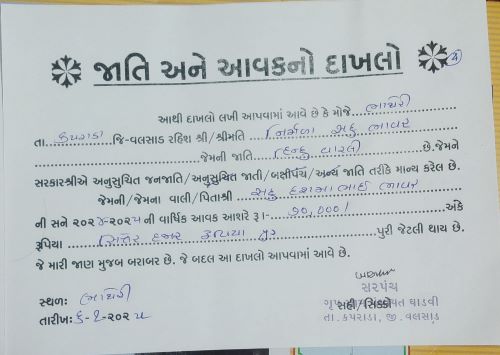 જાતિ અને આવકનો દાખલો
4
આથી દાખલો લખી આપવામાં આવે છે કે મોજે
તા. કપરાડા જિ-વલસાડ રહિશ શ્રી/શ્રીમતિ નિર્મળા
જેમની જાતિ હિન્દુ વારલી છે.જેમને
સરકારશ્રીએ અનુસુચિત જનજાતિ/અનુસુચિત જાતી/બક્ષીપંચ/અન્ય જાતિ તરીકે માન્ય કરેલ છે.
જેમની/જેમના વાલી/પિતાશ્રી
ની સને ૨૦૨૪-૨૦૨૫ ની વાર્ષિક આવક આશરે રૂ।.- ૭૦,૦૦૦/ અંકે
રૂપિયા સિત્તેર હજાર રૂપિયા પુરા પુરી જેટલી થાય છે.
જે મારી જાણ મુજબ બરાબર છે. જે બદલ આ દાખલો આપવામાં આવે છે.
સ્થળ:
સરપંચ
સહી/સિક્કો ઘાડવી
તારીખ: ૨૦૨૫
તા.કપરાડા, જી.વલસાડ